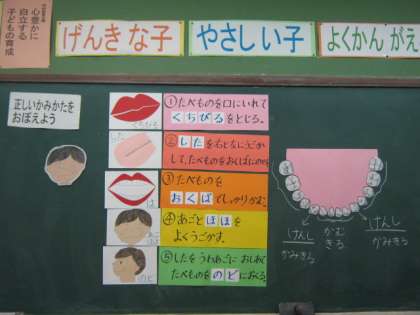 心豊かに
自立する
子どもの育成
げんきな子
やさしい子
よくかんがえ
正しいかみかたを
おぼえよう
くちびる
①たべものを口にいれて
くちびるをとじる。
した
②したを右と左にうごか
して、たべものをおくばにのせる
は
③たべものを
おくばでしっかりかむ。
④あごとほほを
よくうごかす。
のど
⑤したをうわあごにおしあてて
たべものをのどにおくる。
けんし
かみきる
かむ
きる
けんし
かみきる